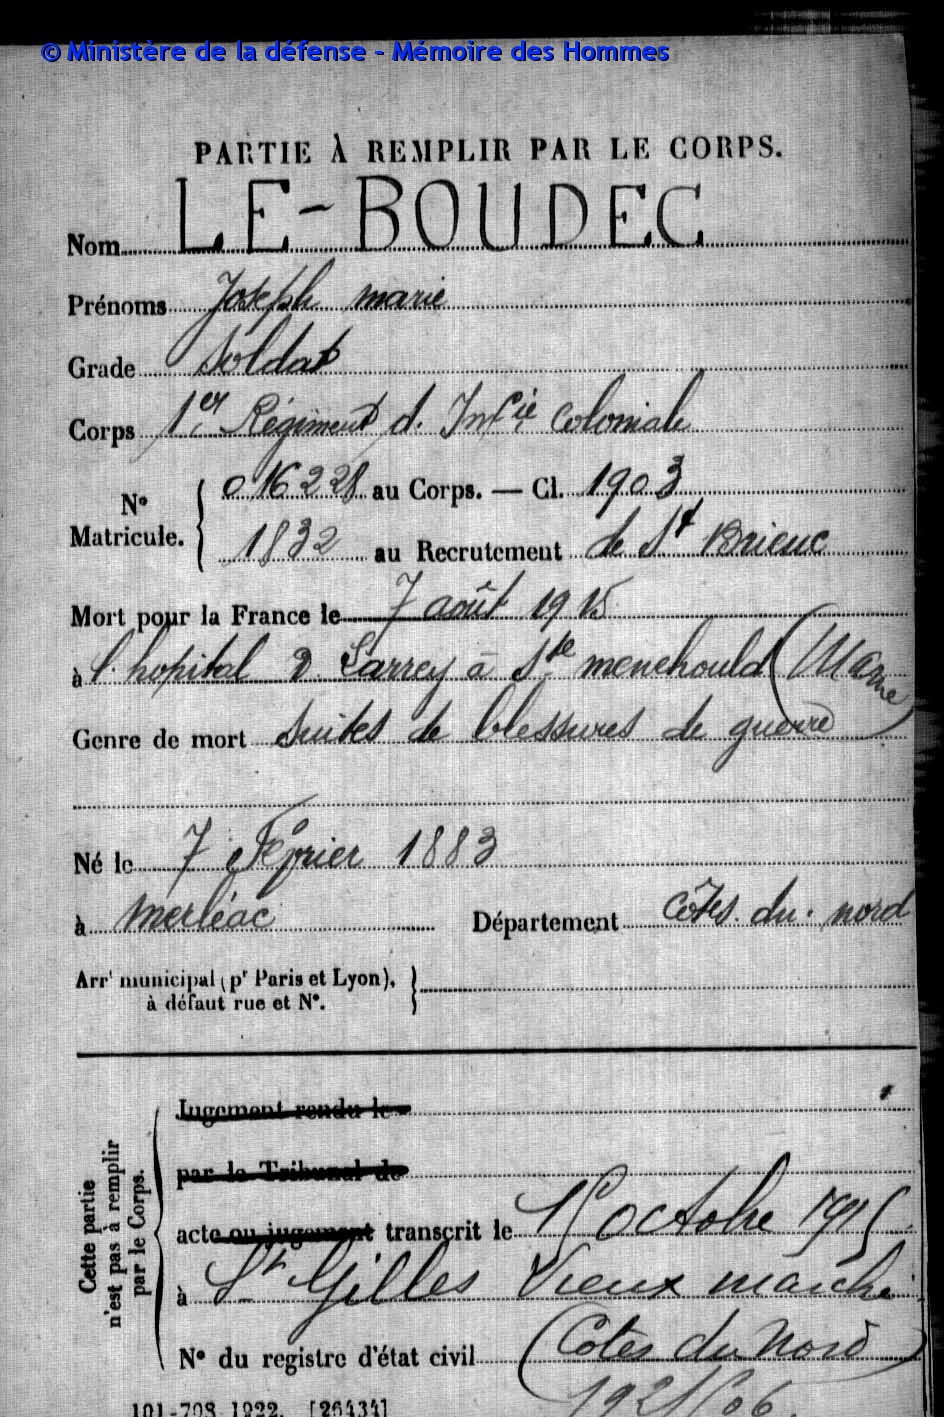 © Ministère de la défense - Mémoire des Hommes
PARTIE À REMPLIR PAR LE CORPS.
Nom LE-BOUDEC
Prénoms Joseph marie
Grade Soldat
Corps 1er Régiment d. Infie Coloniale
N° Matricule. { 016228 au Corps. — Cl. 1903
1832 au Recrutement de St Brieuc
Mort pour la France le 7 août 1915
à l'hopital D. Larrey à Ste menehould (Marne)
Genre de mort Suites de blessures de guerre
Né le 7 Février 1883
à merléac Département Côtes. du. nord
Arrt municipal (pr Paris et Lyon), }
à défaut rue et N°.
Cette partie
n'est pas à remplir
par le Corps.
Jugement rendu le
par le Tribunal de
acte ou jugement transcrit le 15 octobre 1915
à St Gilles Vieux marché
(Côtes du Nord)
N° du registre d'état civil
101-708 1922. [26434]